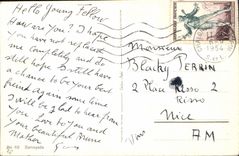 Hello Young Fellow
How are you? I hope
you have not replaced
me completely and do
still hope I still have
a chance to be your best
friend again some time
I will be glad to hear from
you. Love to you and
your beautiful
Mother
Monsieur
Blacky PERRIN
2 Place Risso 2
Risso
Nice
AM
1954